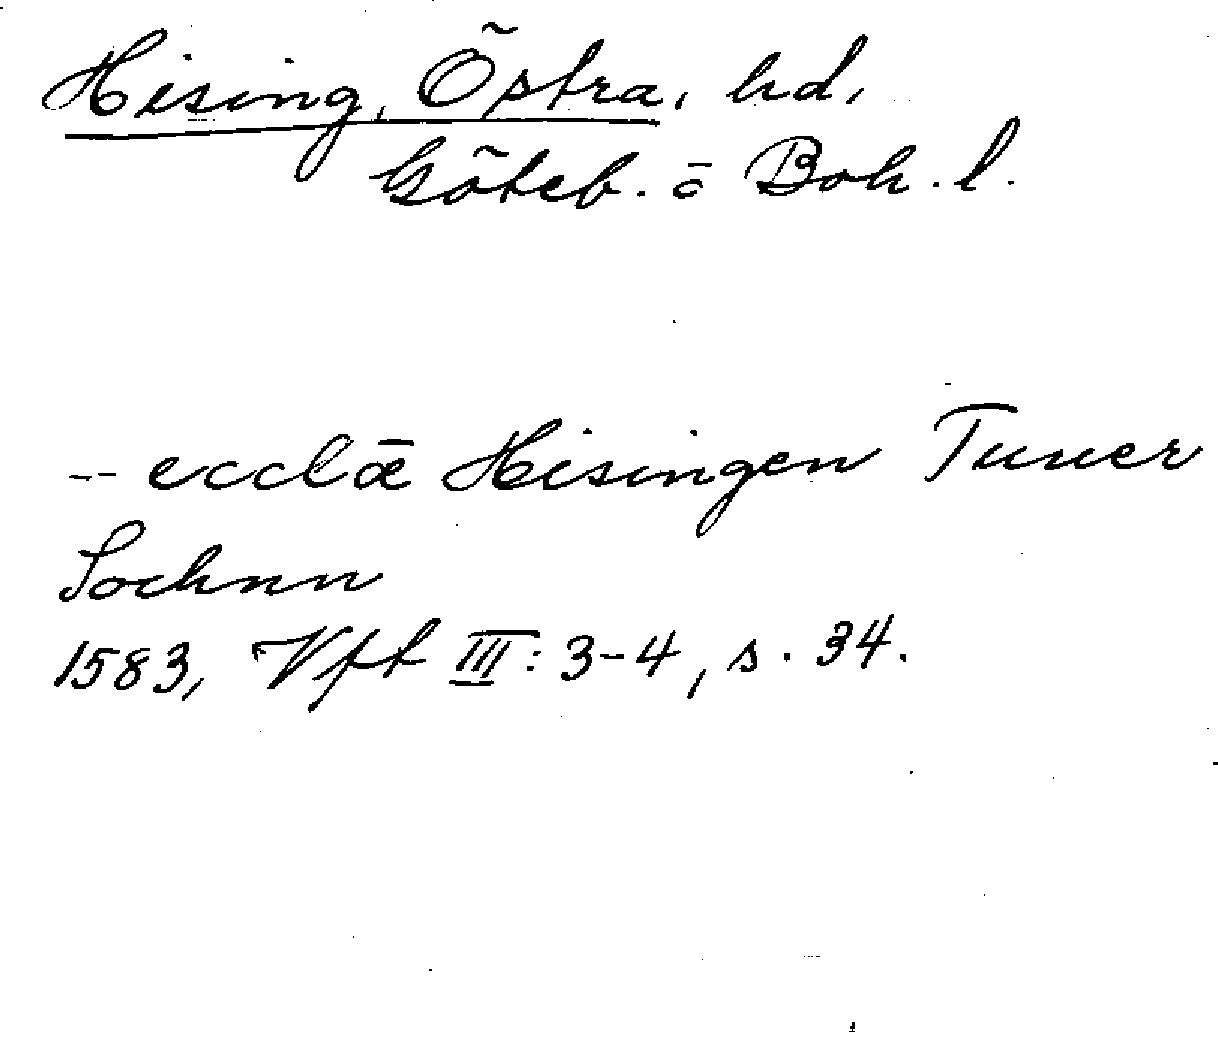 Hising, Östra, hd,
Göteb. o Boh. l.
-- ecclæ Hisingen Tuuer
Sochnn
1583, Vft III: 3-4, s. 34.